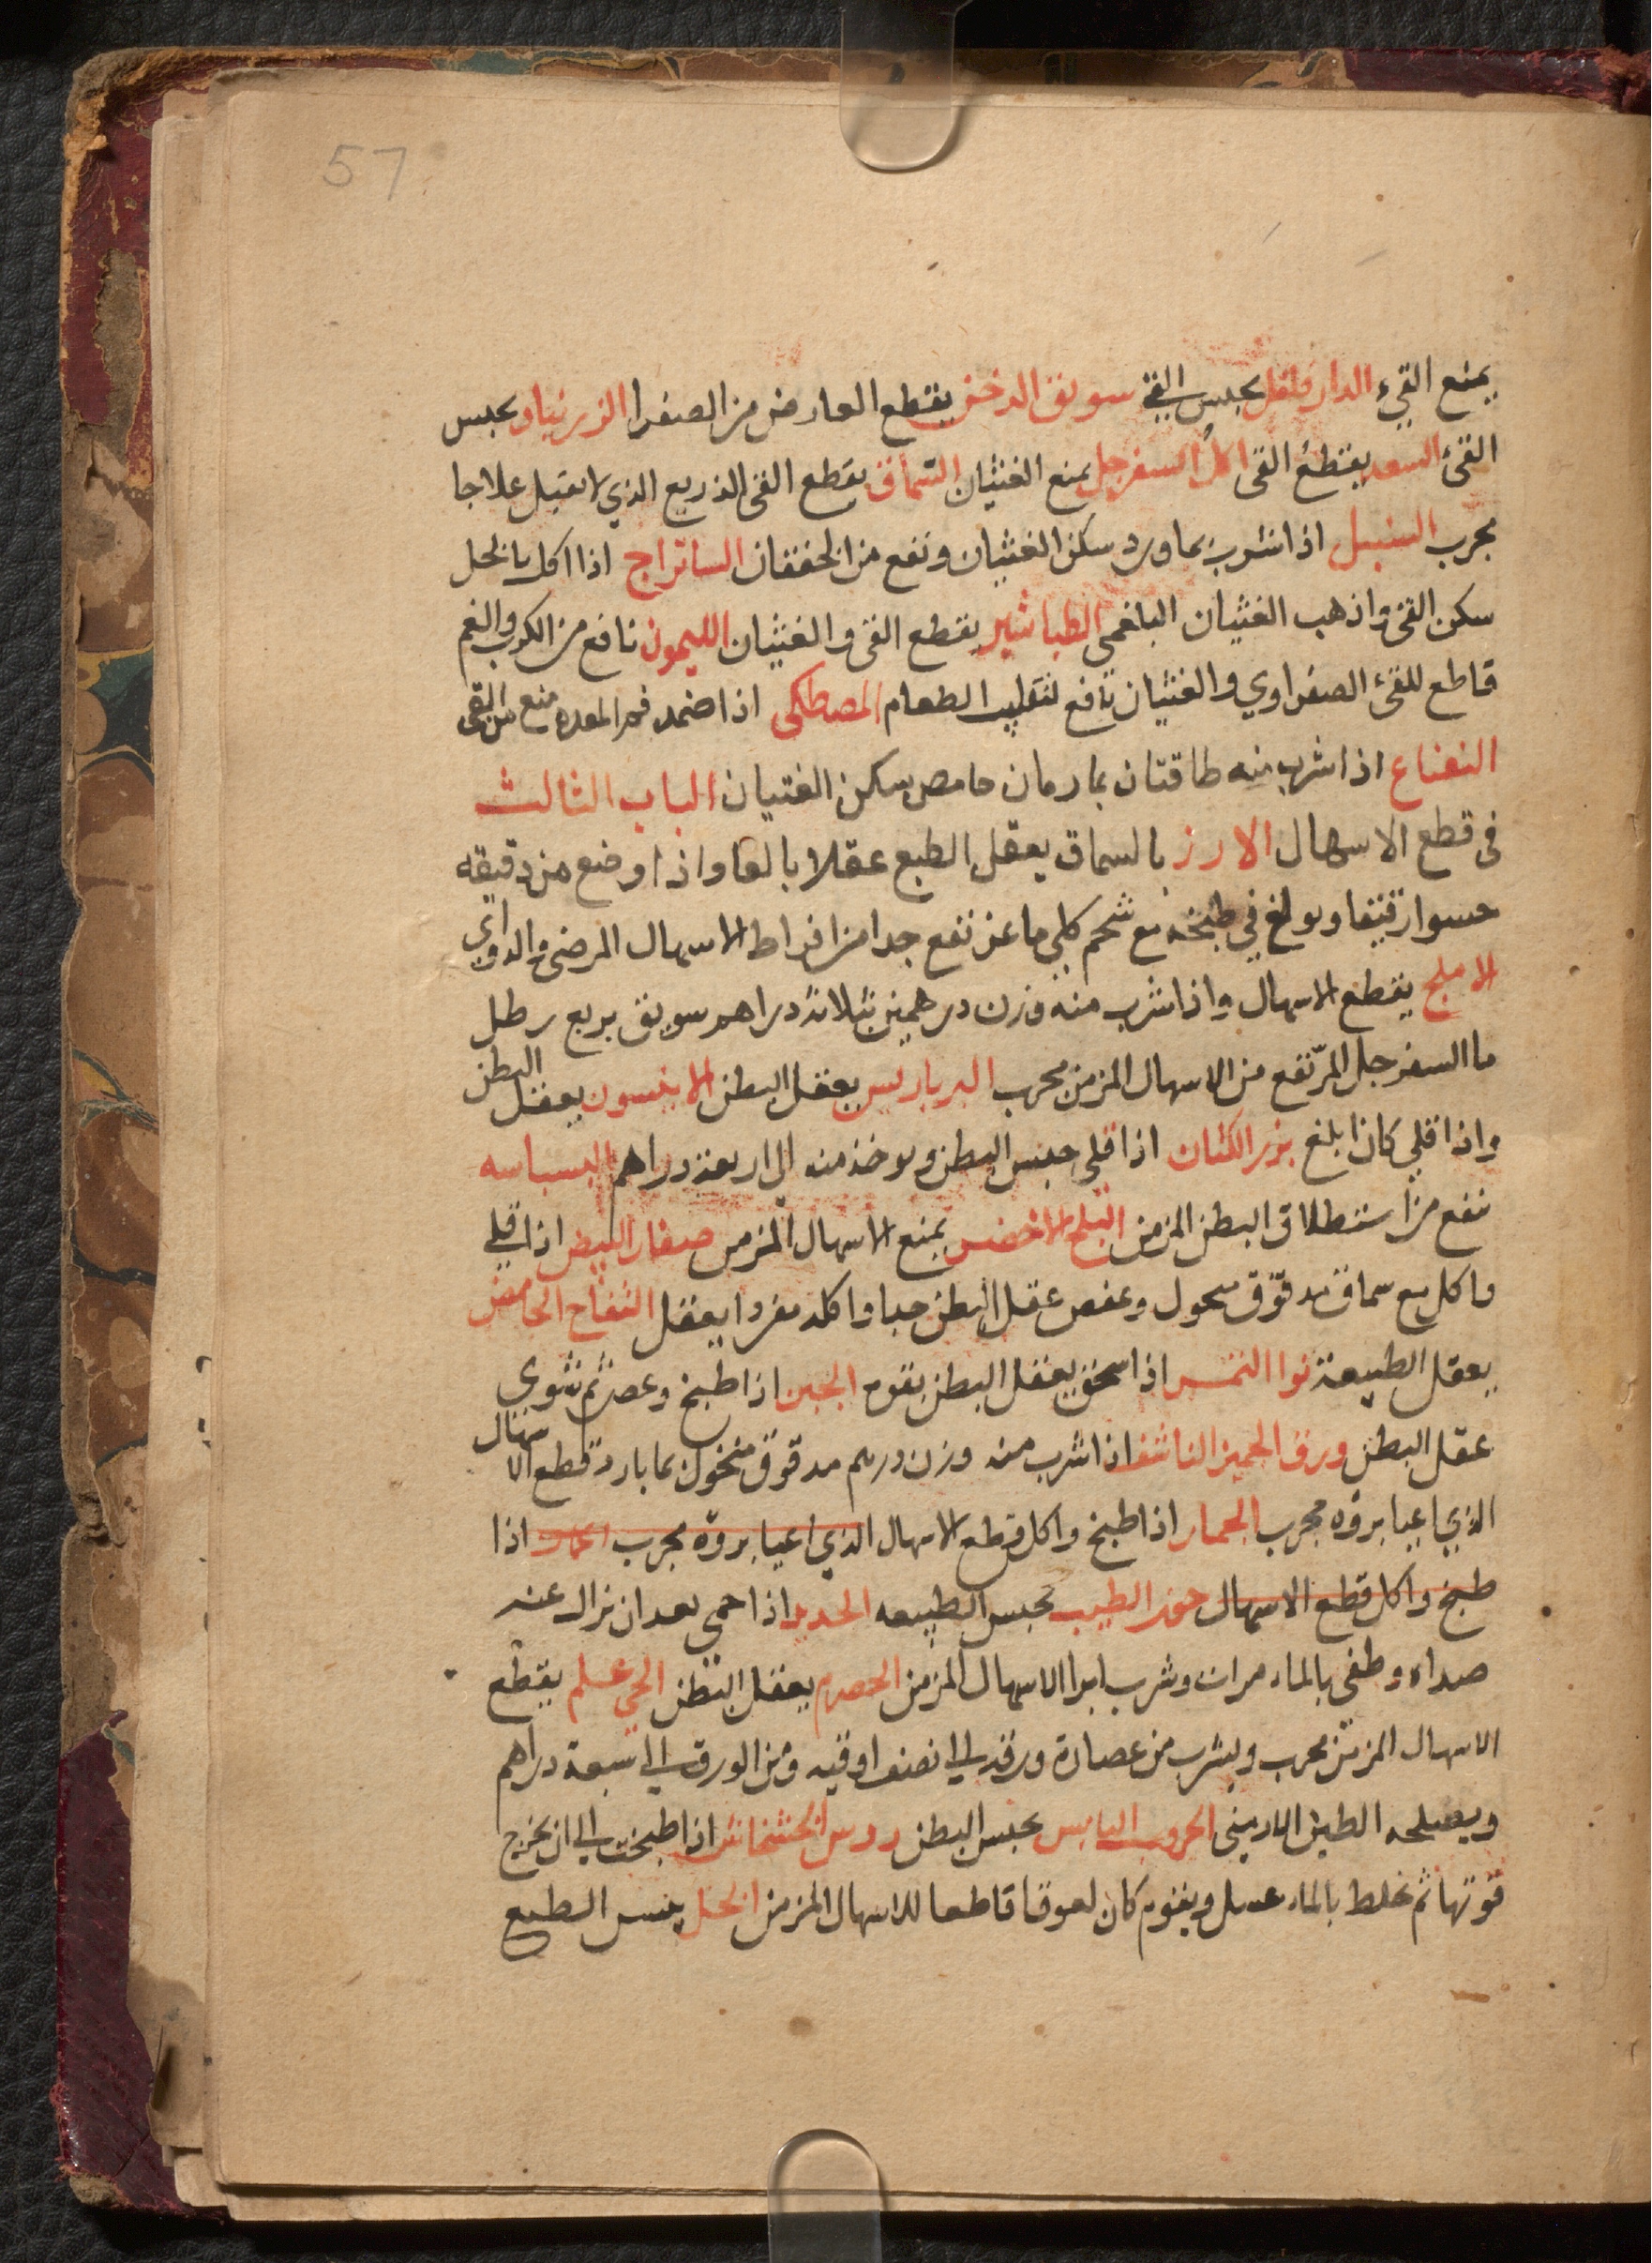 57
يمنع القيء الدار فلفل يحبس القئ سويق الدخن يقطع العارض من الصفرا الزرنباد يحبس
القئ السعد يقطع القئ السفرجل يمنع الغثيان السماق يقطع القئ الذريع الذي لا يقبل علاجا
مجرب السنبل اذا شرب بماورد سكن الغثيان ونفع من الخفقان الساتراج اذا اكل بالخل
سكن القئ واذهب الغثيان البلغمي الطباشير يقطع القئ والغثيان الليمون نافع من الكرب والغم
قاطع للقئ الصفراوي والغثيان نافع لتقليب الطعام المصطكى اذا ضمد فم المعده منع من القئ
النعناع اذا شرب منه طاقتان بما رمان حامص سكن الغثيان الباب الثالث
في قطع الاسهال الارز بالسماق يعقل الطبع عقلا بالغا واذا وضع من دقيقه
حسوا رقيقا وبولغ في طبخه مع شحم كلي ماعز نفع جدا من افراط الاسهال المرضي والدوائي
الاملج يقطع الاسهال واذا شرب منه وزن درهمين بثلاثة دراهم سويق بربع رطل
ما السفرجل المر نفع من الاسهال المزمن مجرب البرباريس يعقل البطن الانيسون يعقل البطن
واذا قلي كان ابلغ بزر الكتان اذا قلي حبس البطن ويوخذ منه الى اربعة دراهم البسباسه
نفع من استطلاق البطن المزمن البلح الاخضر يمنع الاسهال المزمن صفار البيض اذا قلي
واكل مع سماق مدقوق محول وعفص عقل البطن جيدا واكله مفردا يعقل التفاح الحامض
يعقل الطبيعة نوا التمر اذا سحق يعقل البطن بقوه الجبن اذا طبخ وعصر ثم شوي
عقل البطن ورق الجميز الناشف اذا شرب منه وزن درهم مدقوق منخول بما بارد قطع الاسهال
الذي اعيا بروه مجرب الجمار اذا طبخ واكل قطع الاسهال الذي اعيا بروه مجرب الجمار اذا
طبخ واكل قطع الاسهال جوز الطيب يحبس الطبيعه الحديد اذا حمي بعد ان يزال عنه
صداه وطفى بالماء مرات وشرب ابرا الاسهال المزمن الحصرم يعقل البطن الحي علم يقطع
الاسهال المزمن مجرب ويشرب من عصارة ورقه الى نصف اوقيه ومن الورق الى سبعة دراهم
ويصلحه الطين الارميني الخروب اليابس يحبس البطن روس الخشخاش اذا طبخت الى ان يخرج
قوتها ثم يخلط بالماء عسل ويقوم كان لعوقا قاطعا للاسهال المزمن الخل يحبس الطبع